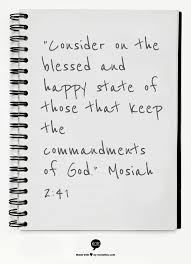 "Consider on the
blessed and
happy state of
those that keep
the
commandments
of God." Mosiah
2:41